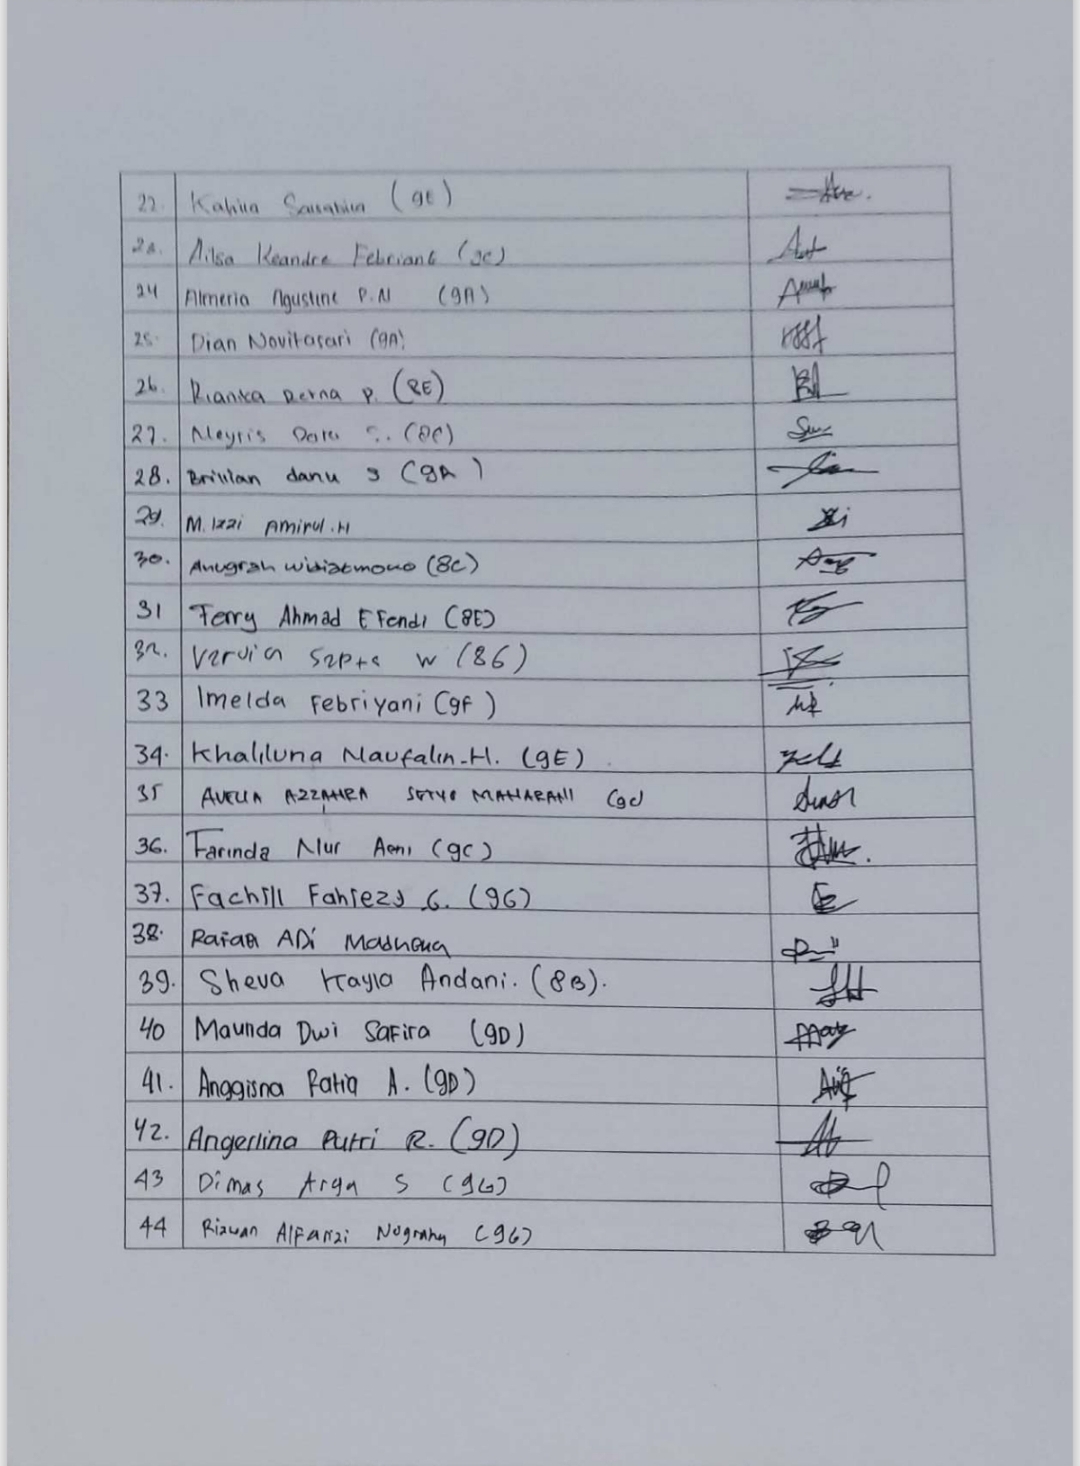 22. Kahila (9E)
23. Ailsa Keandre Febriant (9C)
24 Almeria Agustine P.N (9A)
25. Dian Novitasari (9A)
26. Rianka Derna P. (8E)
27. Neyris (8C)
28. Brillian danu S (9A)
29. M. Izzi Amirul.H
30. Anugrah (8C)
31 Ferry Ahmad Efendi (8E)
32. Septa W (8G)
33 Imelda Febriyani (9F)
34. Khaliluna Naufalin.H. (9E)
35 AVELIA AZZAHRA SETYO MAHARANI (9C)
36. Farinda Nur Aeni (9C)
37. Fachill Fahrezy G. (9G)
38. ADi
39. Sheva Kayla Andani. (8B).
40 Maunda Dwi Safira (9D)
41. Anggisna Ratia A. (9D)
42. Angerlina Putri R. (9D)
43 Dimas Arga S (9G)
44 Rizwan Alfarizi (9G)